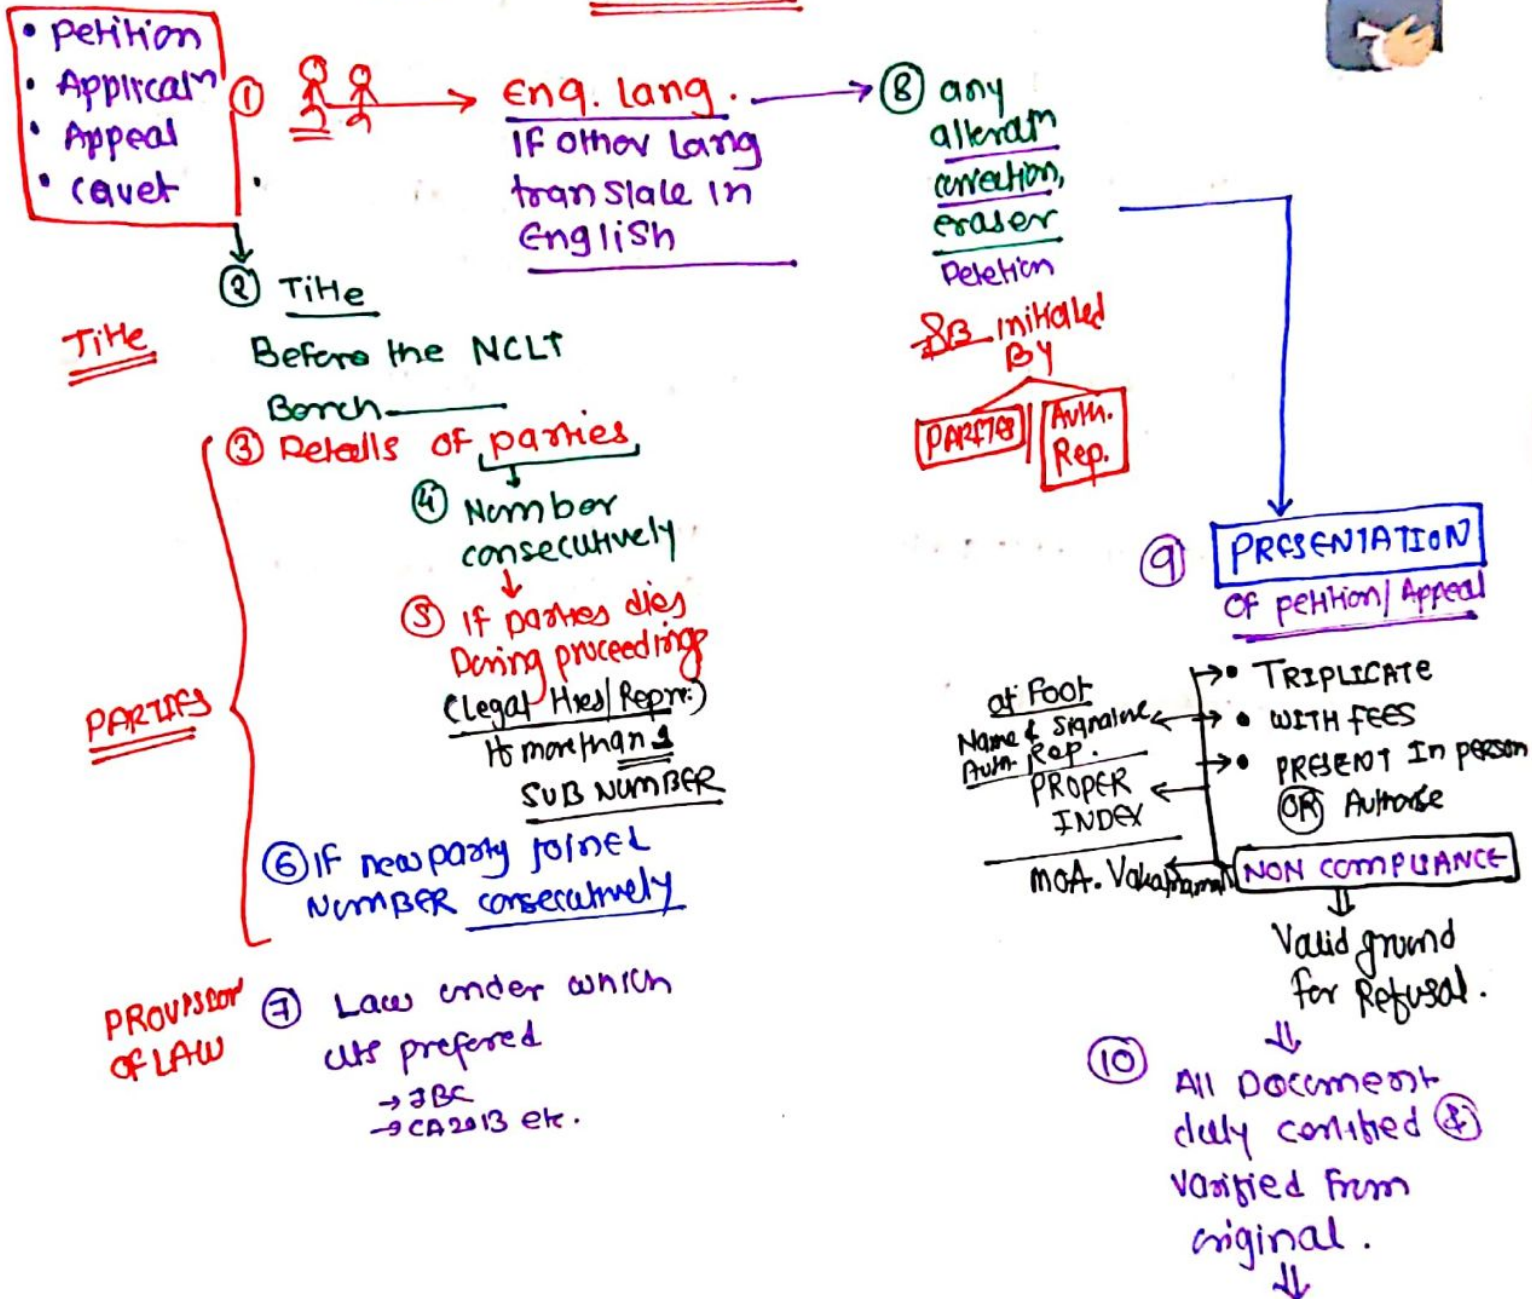 • Petition
• Applicatn
• Appeal
• Cavet
①
Eng. lang.
If other Lang
translate in
English
② Title
Title
Before the NCLT
Bench
③ Details of parties
④ Number
consecutively
⑤ If parties dies
During proceedings
(Legal Hres/Repr.)
If more than 1
SUB NUMBER
PARTIES
⑥ If new party joined
NUMBER consecutively
PROVISION
OF LAW
⑦ Law under which
its prefered
→ IBC
→ CA 2013 etc.
⑧ any
alteratn
correction,
eraser
Deletion
initialed
By
PARTIES
Auth.
Rep.
⑨ PRESENTATION
Of petition/Appeal
• TRIPLICATE
• WITH FEES
• PRESENT In person
OR Authorise
at Foot
Name & Signature
Auth. Rep.
PROPER
INDEX
MOA. Vakalatnama
NON COMPLIANCE
Valid ground
for Refusal.
⑩ All Document
duly certified &
Varified from
original.